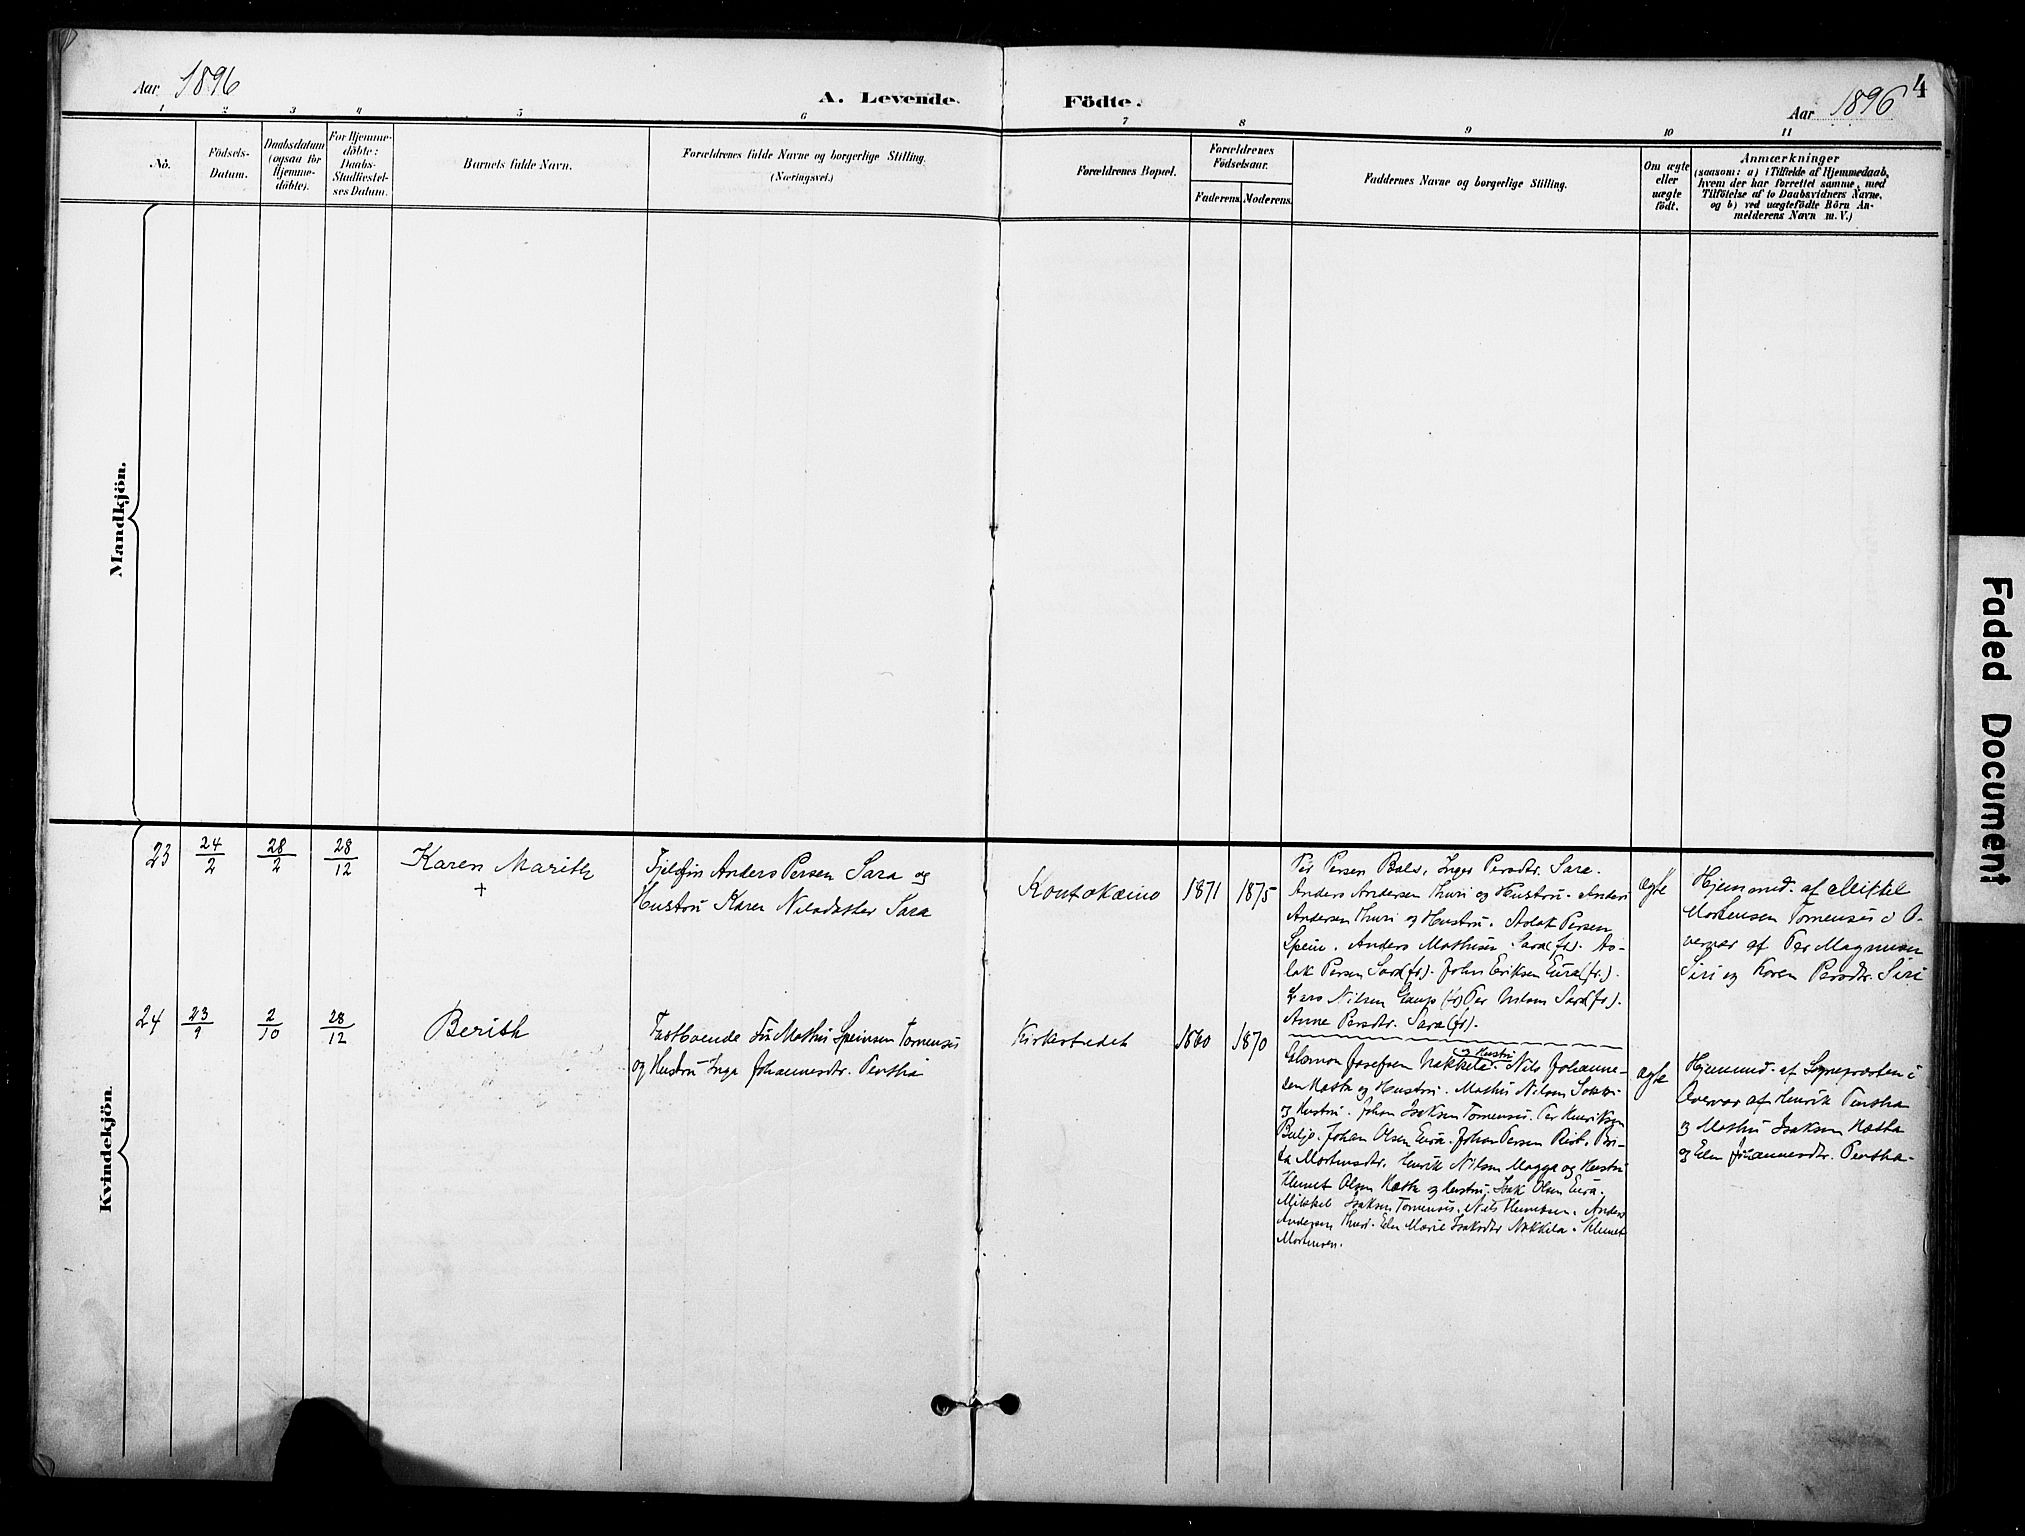 Aar 1896
A. Levende
Födte.
Aar 1896
4
1 2 3 4 5 6 7 8 9 10 11
No.
Födsels-
Datum.
Daabsdatum
(ogsaa for
Hjemme-
döbte).
For Hjemme-
döbte:
Daabs-
Stadfæstel-
ses Datum.
Barnets fulde Navn.
Forældrenes fulde Navne og borgerlige Stilling.
(Næringsvei.)
Forældrenes Bopæl.
Forældrenes
Födselsaar.
Faderens.
Moderens.
Faddernes Navne og borgerlige Stilling.
Om ægte
eller
uægte
födt.
Anmærkninger
(saasom: a) i Tilfælde af Hjemmedaab,
hvem der har forrettet samme, med
Tilföielse af to Daabsvidners Navne,
og b) ved uægtefödte Börn An-
melderens Navn m. V.)
Mandkjön.
Kvindekjön.
23
24/2
28/2
28/12
Karen Marith
+
Fjeldfin Anders Persen Sara og
Hustru Karen Nilsdatter Sara
Koutokæino
1871
1875
Per Persen Bals, Inger Persdtr. Sara.
Anders Andersen Thuri og Hustru. Anders
Andersen Thuri og Hustru. Aslak Persen
Spein. Anders Mathisen Sara (fr). As-
lak Persen Sara (fr). John Eriksen Eura (fr.).
Lars Nilsen Gaup (fr) Per Nilsen Sara (fr).
Anne Persdtr. Sara (fr).
ægte
Hjemmed. af Mikkel
Mortensen Tornensis i O-
vervær af Per Magnusen
Siri og Karen Persdtr. Siri
24
23/9
2/10
28/12
Berith
Fastboende Fin Mathis Speinsen Tornensis
og Hustru Inga Johannesdtr. Pentha
Kirkestedet
1860
1870
og Hustru
Salomon Josefsen Nakkela. Nils Johanne-
sen Hætta og Hustru. Mathis Nilsen Sokki
og Hustru. Johan Isaksen Tornensis. Per Henriksen
Buljo. Johan Olsen Eura. Johan Persen Rist. Bri-
ta Mortensdtr. Henrik Nilsen Magga og Hustru
Klemet Olsen Hætta og Hustru. Isak Olsen Eura.
Mikkel Isaksen Tornensis. Nils Klemetsen. Anders
Andersen Thuri. Elen Marie Isaksdtr Nakkela. Klemet
Mortensen.
ægte
Hjemmed. af Sognepræsten i
Overvær af Henrik Pentha
og Mathis Isaksen Hætta
og Elen Johannesdtr. Pentha.
Faded Document